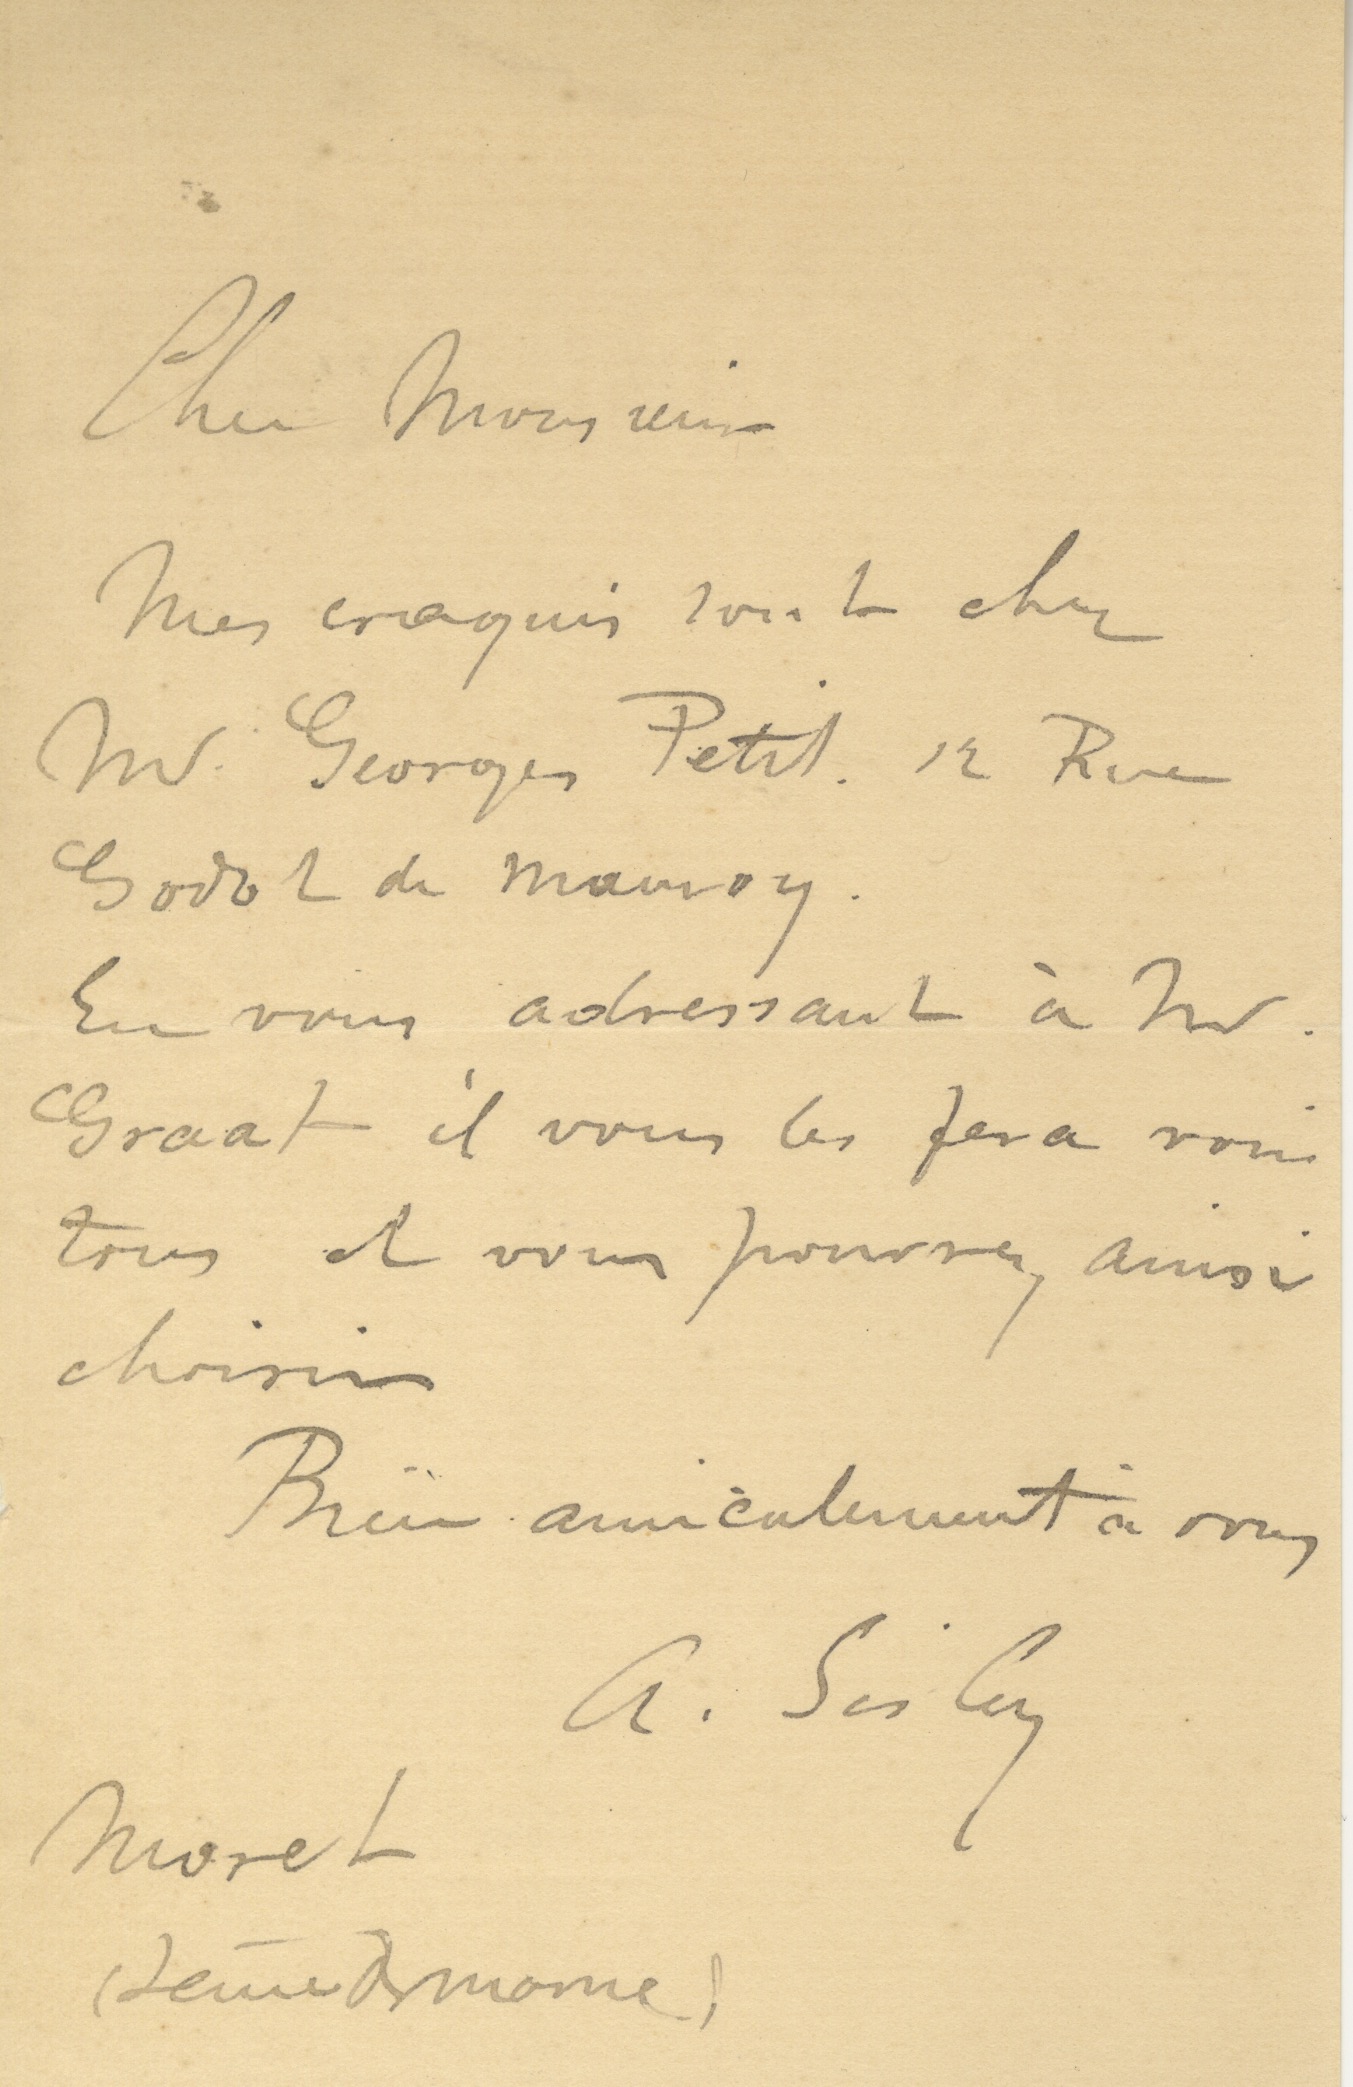 Cher Monsieur
Mes craquis sont chez
Mr. Georges Petit. 12 Rue
Godot de Mauroy.
En vous adressant à Mr.
Graat il vous les fera voir
tous et vous pourrez ainsi
choisir
Bien amicalement à vous
A. Sisley
Moret
(Seine & Marne)